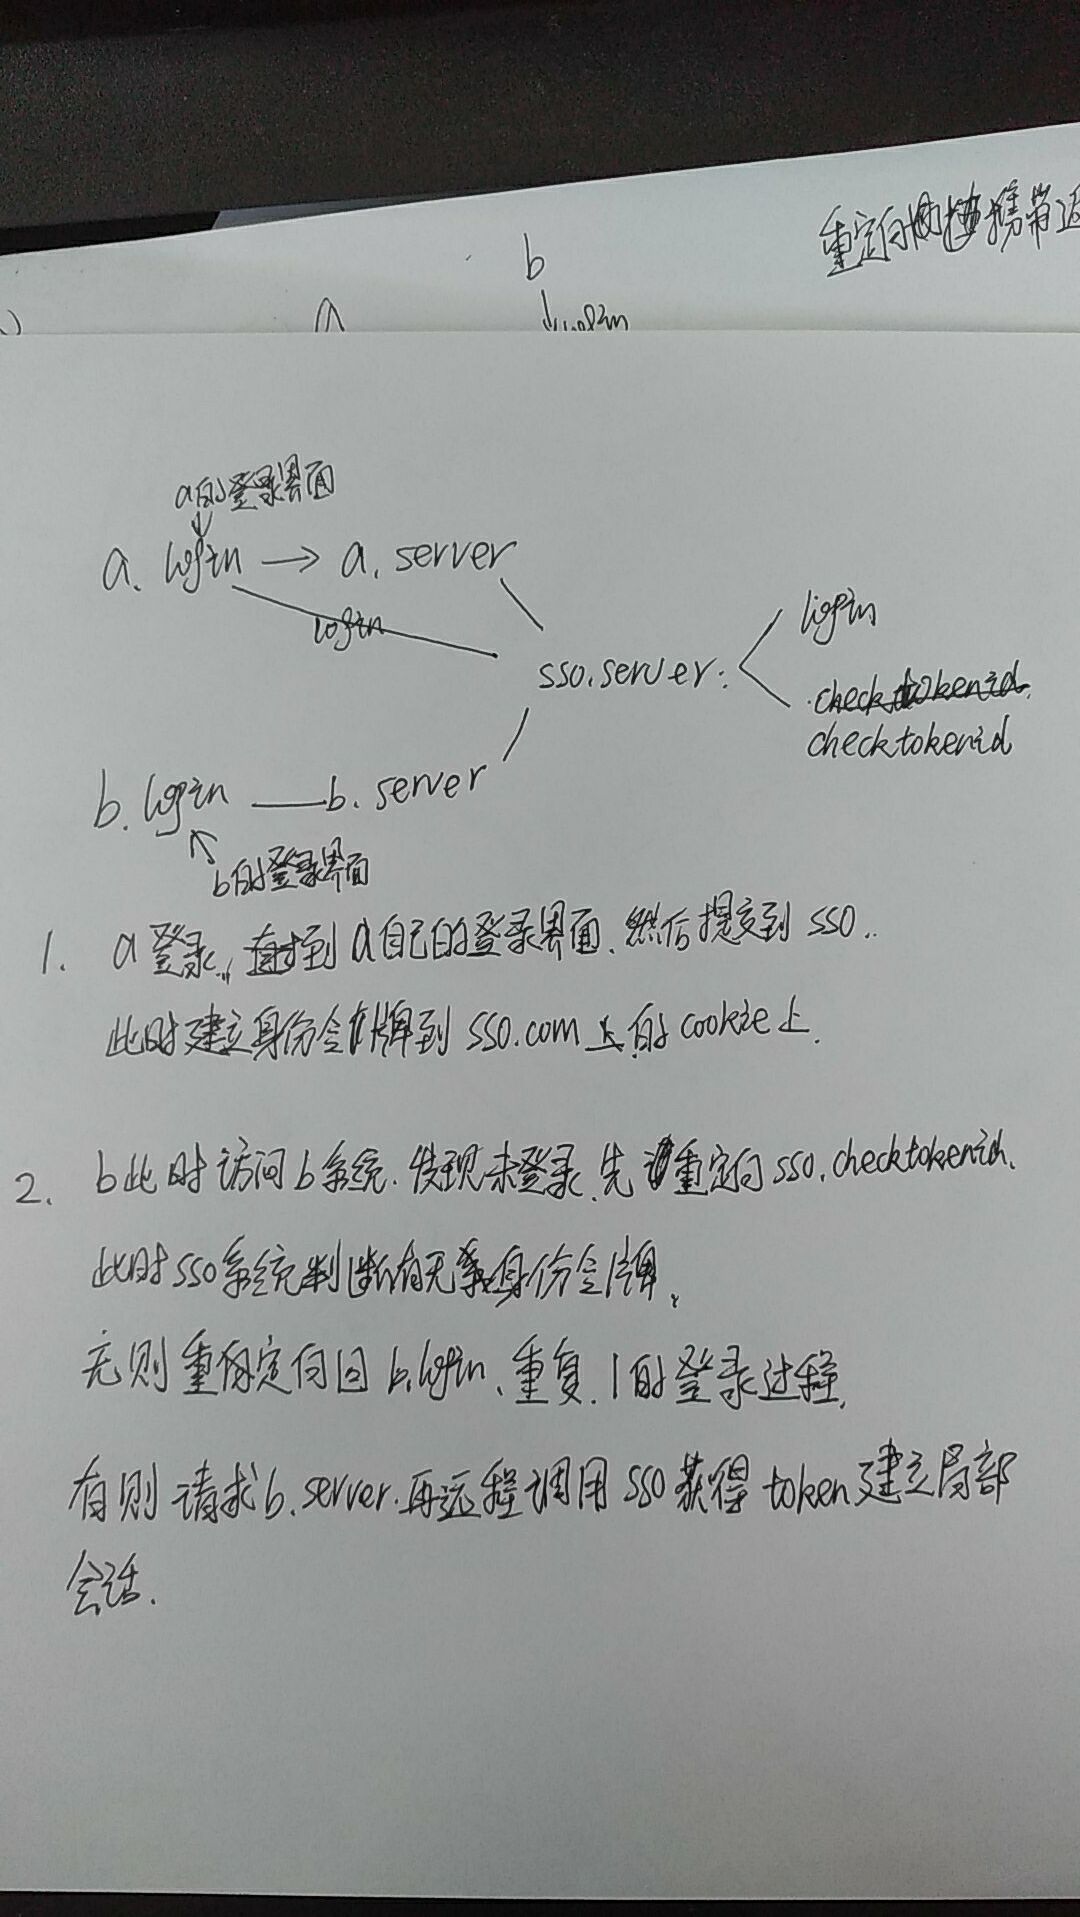 b
重定向 携带
a
login
a的登录界面
a. login → a. server
login
login
sso. server:
checktokenid
checktokenid
b. login —— b. server
b的登录界面
1. a登录, 直接到a自己的登录界面、然后提交到 sso.
此时建立身份令牌到 sso.com 上的 cookie上.
2. b此时访问b系统. 发现未登录、先重定向 sso. checktokenid.
此时sso系统判断有无身份令牌.
无则重定向回 b. login、重复 1的登录过程.
有则 请求b. server. 再远程调用 sso 获得 token 建立局部
会话.